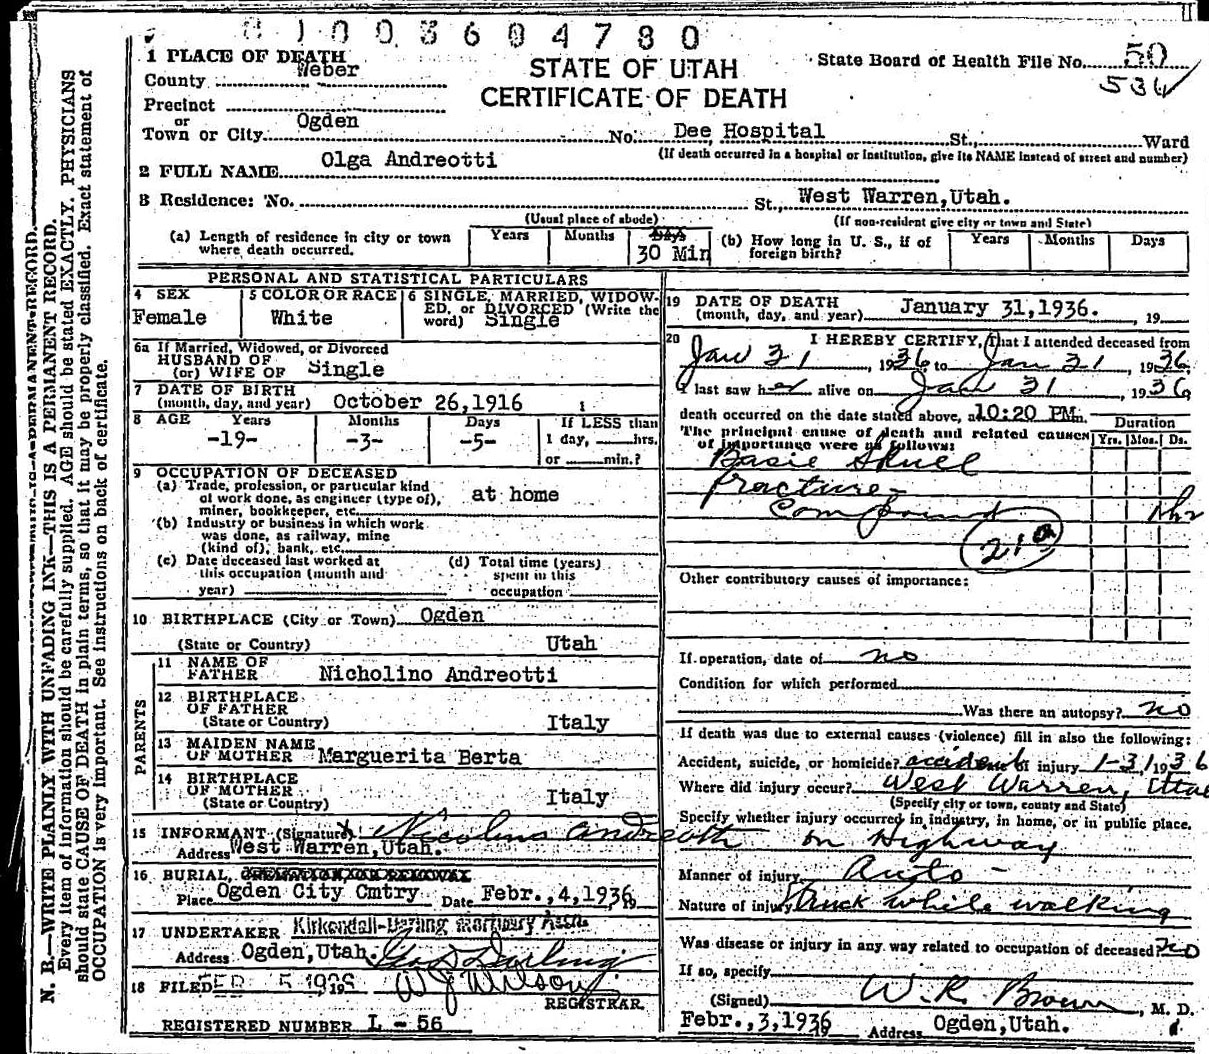 01003604780
1 PLACE OF DEATH
County Weber
STATE OF UTAH
CERTIFICATE OF DEATH
State Board of Health File No. 50
536
Precinct
or
Town or City Ogden No. Dee Hospital St., Ward
(If death occurred in a hospital or institution, give its NAME instead of street and number)
2 FULL NAME Olga Andreotti
3 Residence: No. St., West Warren,Utah.
(Usual place of abode) (If non-resident give city or town and State)
(a) Length of residence in city or town where death occurred. Years Months Days 30 Min
(b) How long in U. S., if of foreign birth? Years Months Days
PERSONAL AND STATISTICAL PARTICULARS
4 SEX Female
5 COLOR OR RACE White
6 SINGLE, MARRIED, WIDOWED, or DIVORCED (Write the word) Single
6a If Married, Widowed, or Divorced
HUSBAND OF
(or) WIFE OF Single
7 DATE OF BIRTH
(month, day, and year) October 26,1916
8 AGE Years Months Days If LESS than
-19- -3- -5- 1 day, hrs.
or min.?
9 OCCUPATION OF DECEASED
(a) Trade, profession, or particular kind
of work done, as engineer (type of),
miner, bookkeeper, etc. at home
(b) Industry or business in which work
was done, as railway, mine
(kind of), bank, etc.
(c) Date deceased last worked at
this occupation (month and
year)
(d) Total time (years)
spent in this
occupation
10 BIRTHPLACE (City or Town) Ogden
(State or Country) Utah
PARENTS
11 NAME OF
FATHER Nicholino Andreotti
12 BIRTHPLACE
OF FATHER
(State or Country) Italy
13 MAIDEN NAME
OF MOTHER Marguerita Berta
14 BIRTHPLACE
OF MOTHER
(State or Country) Italy
15 INFORMANT (Signature) X Nicolino Andreotti
Address West Warren,Utah.
16 BURIAL, CREMATION OR REMOVAL
Place Ogden City Cmtry Date Febr.,4,1936
17 UNDERTAKER Kirkendall-Darling Mortuary Assn.
Address Ogden,Utah. Geo Darling
18 FILED FEB 5 1936 W J Wilson
REGISTRAR.
REGISTERED NUMBER L - 56
19 DATE OF DEATH
(month, day, and year) January 31,1936. , 19
20 I HEREBY CERTIFY, That I attended deceased from
Jan 31, 1936 to Jan 31, 1936
I last saw her alive on Jan 31, 1936
death occurred on the date stated above, at 10:20 PM m.
The principal cause of death and related causes
of importance were as follows:
Duration
Yrs. Mos. Ds.
Basic Skull
fracture-
Compound 1 hr
Other contributory causes of importance:
If operation, date of no
Condition for which performed
Was there an autopsy? no
If death was due to external causes (violence) fill in also the following:
Accident, suicide, or homicide? accident Date of injury 1-31, 1936
Where did injury occur? West Warren, Utah
(Specify city or town, county and State)
Specify whether injury occurred in industry, in home, or in public place.
on Highway
Manner of injury Auto -
Nature of injury Struck while walking
Was disease or injury in any way related to occupation of deceased? no
If so, specify
(Signed) W. R. Brown, M. D.
Febr.,3,1936 Address Ogden,Utah.
N. B.—WRITE PLAINLY WITH UNFADING INK—THIS IS A PERMANENT RECORD.
Every item of information should be carefully supplied. AGE should be stated EXACTLY. PHYSICIANS
should state CAUSE OF DEATH in plain terms, so that it may be properly classified. Exact statement of
OCCUPATION is very important. See instructions on back of certificate.